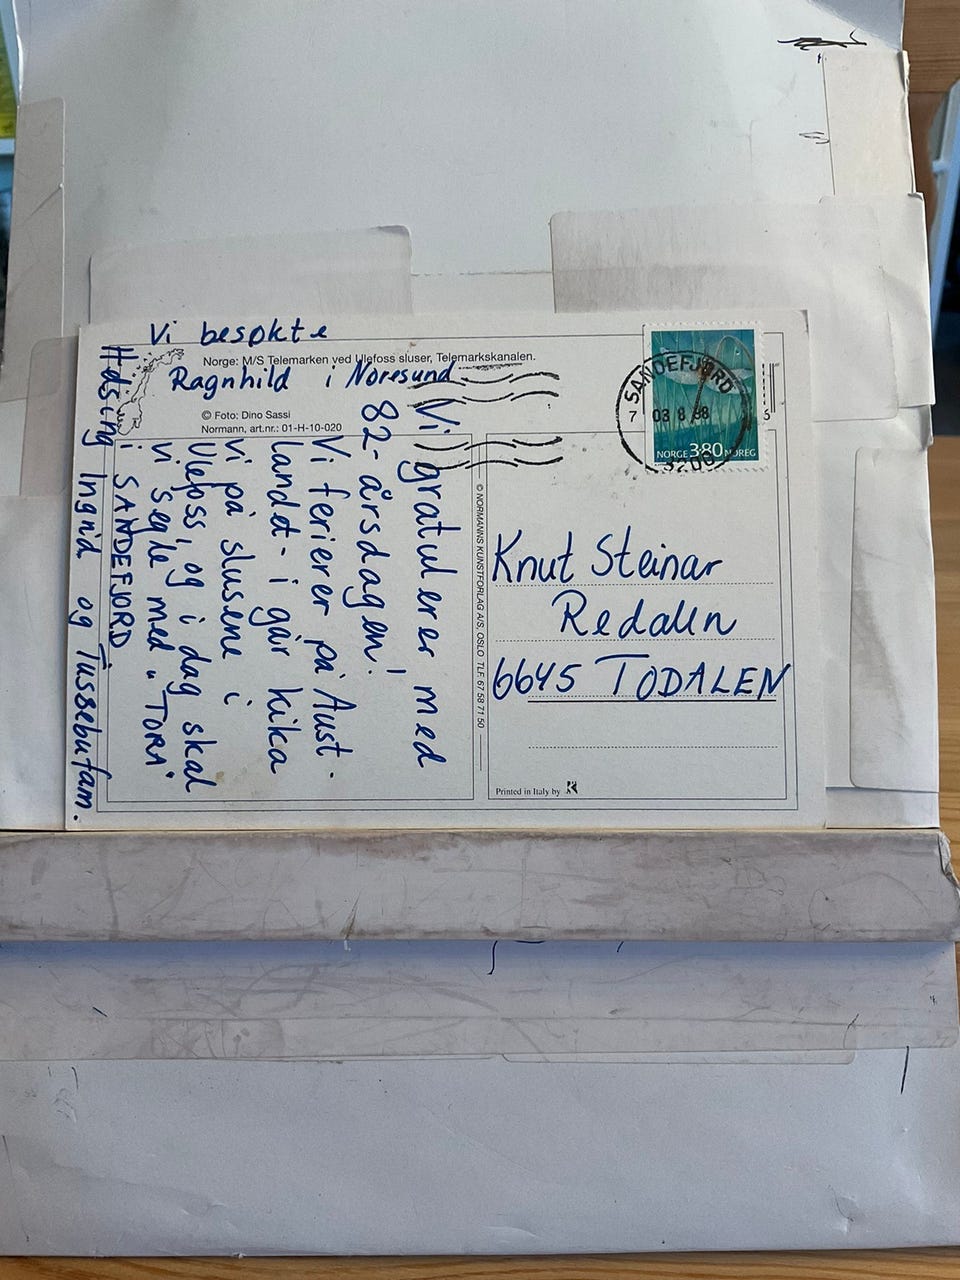 Vi besøkte
Ragnhild i Noresund
Norge: M/S Telemarken ved Ulefoss sluser, Telemarkskanalen.
© Foto: Dino Sassi
Normann, art.nr.: 01-H-10-020
Vi gratulerer med
82-årsdagen!
Vi ferierer på Aust-
landet - i går kika
vi på slusene i
Ulefoss, og i dag skal
vi segle med "TORA"
i SANDEFJORD
Helsing Ingrid og Tussebufam.
© NORMANNS KUNSTFORLAG A/S, OSLO TLF. 67 58 71 50
SANDEFJORD
7 03 8 98
3200
NORGE 380 NOREG
Knut Steinar
Redalen
6645 TODALEN
Printed in Italy by